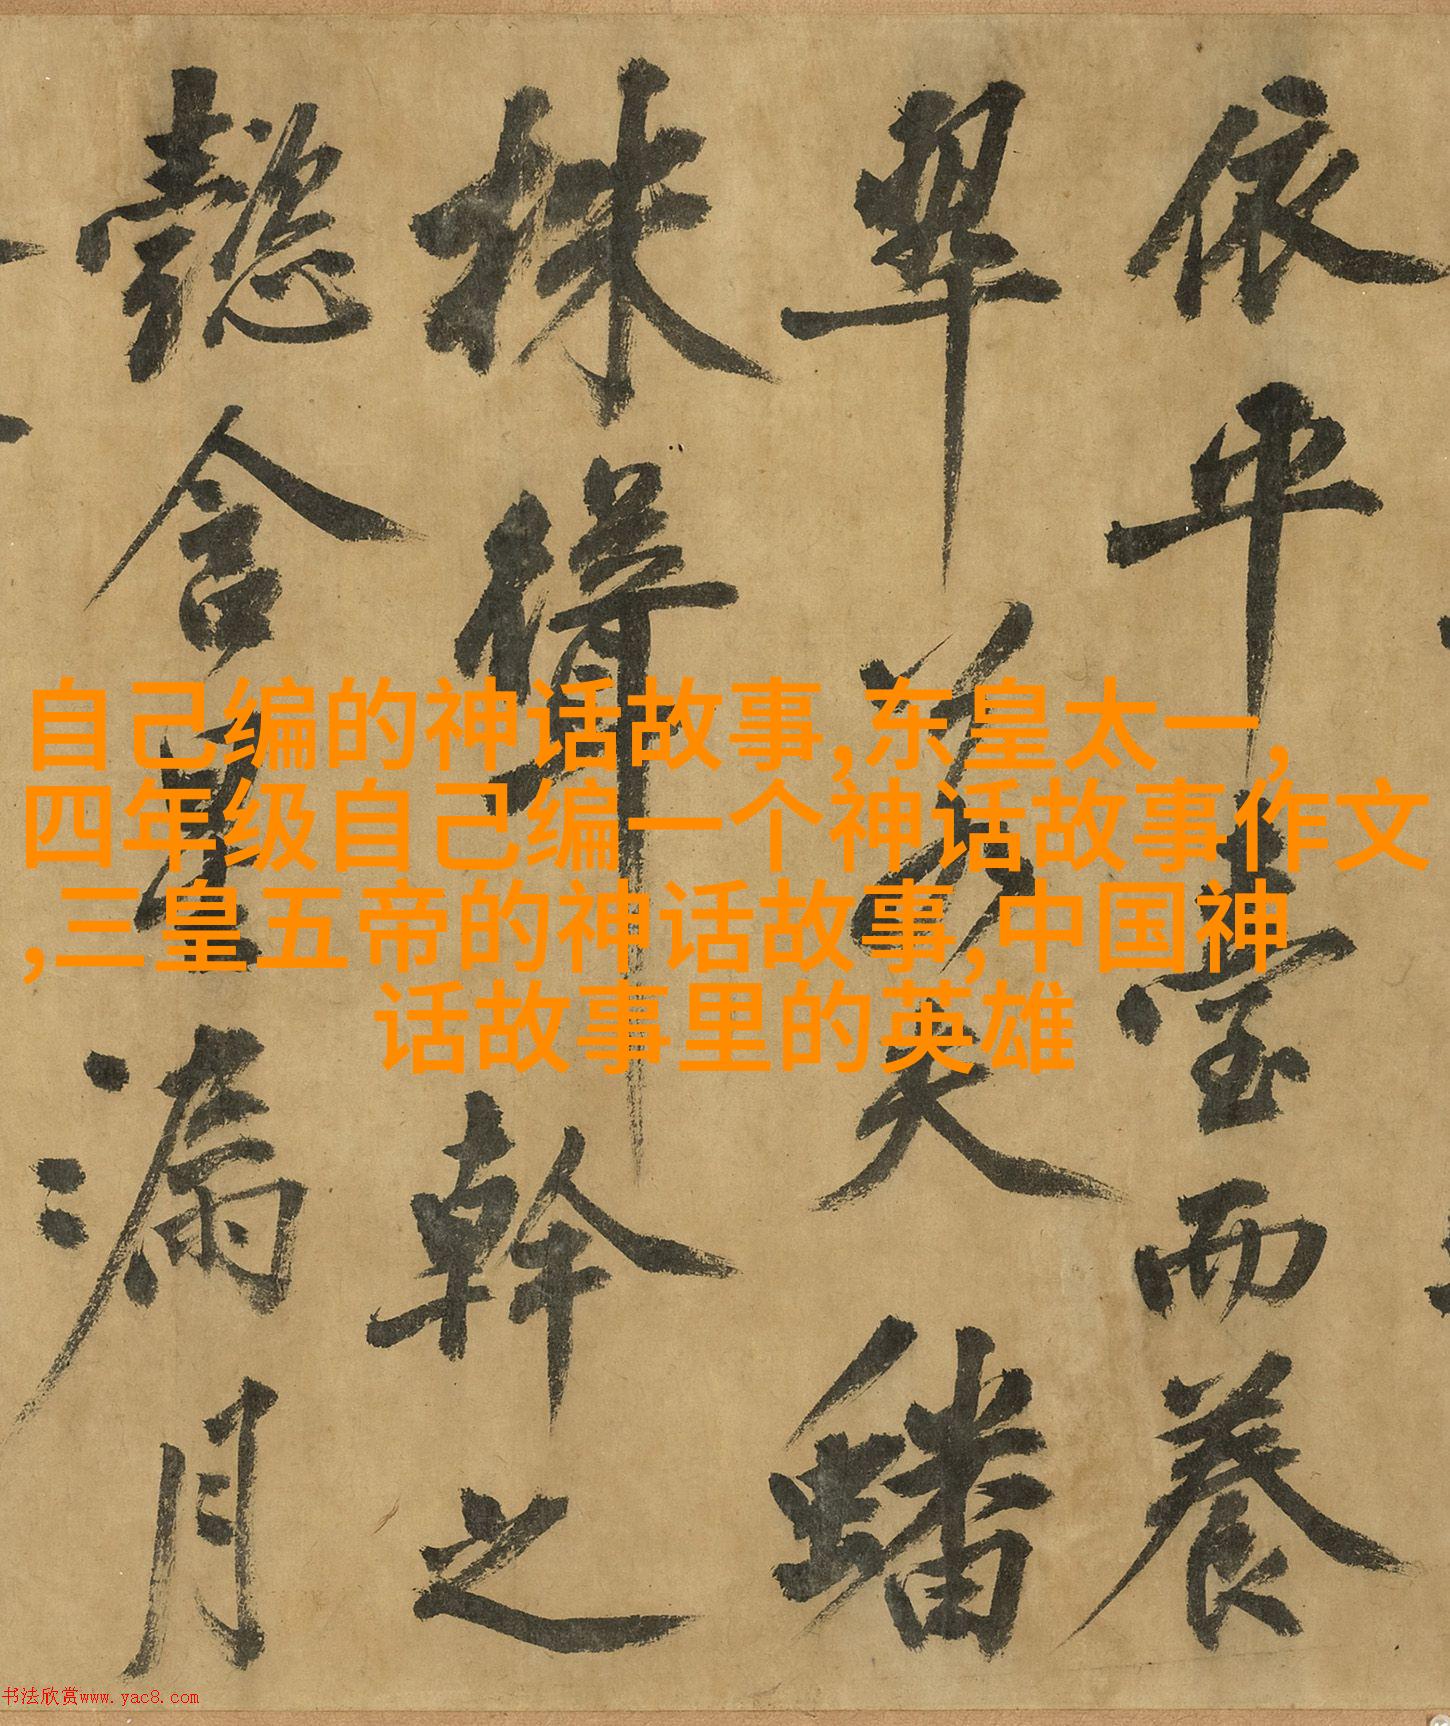 依平臺而養
翠若夫蟠
株幹之
懿含星漏月
自己编的神话故事,东皇太一,
四年级自己编一个神话故事作文
,三皇五帝的神话故事,中国神
话故事里的英雄
书法欣赏www.yac8.com